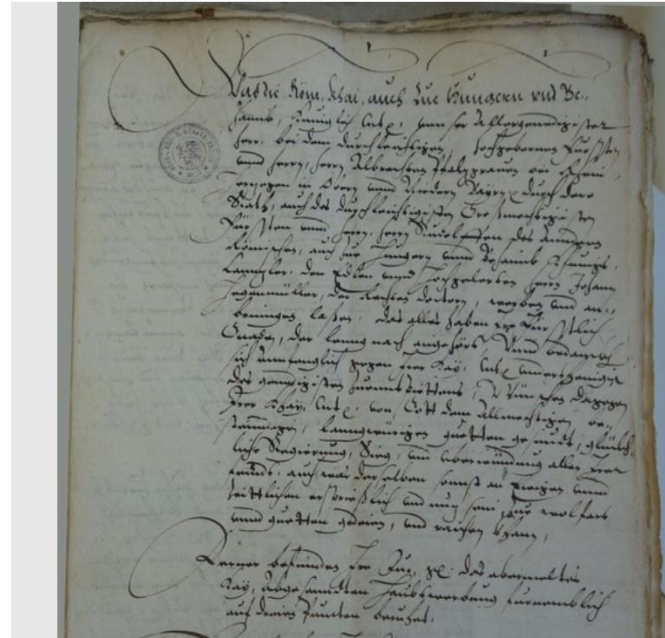 Was die Röm. Khai. auch zue Hungern und Be-
haimb, Königlich Mt. unser Allergenedigister
herr, bei dem durchleichtigen, hochgebornen Fürsten
unnd herrn, herrn Albrechten Pfalzgraven bei Rhein
Herzogen in Obern unnd Nidern Bayrn durch dero
Räth, auch des durchleichtigisten Großmechtigisten
Fürsten unnd herrn, herrn Rudolffen des Anndern
Römischen, auch zue Hungern unnd Behaimb Khunigs
Cannzler, den Edlen unnd Hochgelerten herrn Johann
Hegenmüller, der Rechten Doctorn, werben und an-
bringen lassen. Das alles haben Ir Fürstlich
Gnaden, der lenng nach angehört. Unnd bedannckh
sich anfenglich gegen Irer Kay. Mt. underthenigist
des genedigisten zuemuettens, Wünschen dagegen
Irer Khay. Mt. von Gott dem Allmechtigen, be-
stenndigen, lanngwürigen gueten gesundt, glückh-
liche Regierung, Sieg, und uberwindung aller Irer
feindt, auch was derselben sonnst zu Ewigen unnd
Zeittlichen ersprießlich und nuz sein, zue wolfart
unnd guettem gedeien, und raichen khann,
Ferner befinden Ir Für. ge. das abermeltes
Kay. Abgesanndten haubtwerbung fürnemblich
auf dreien Puncten beruhet.